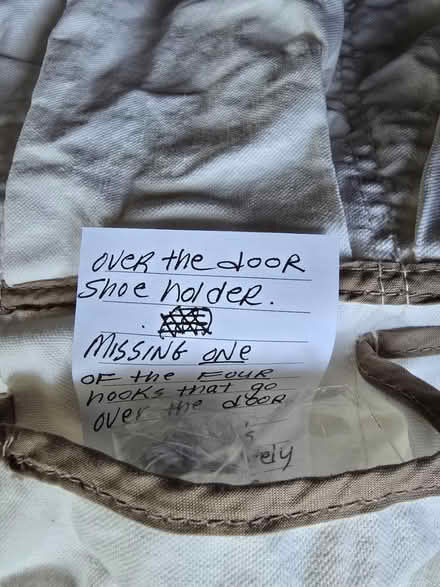 over the door
Shoe holder.
Missing one
of the four
hooks that go
over the door
's
ely